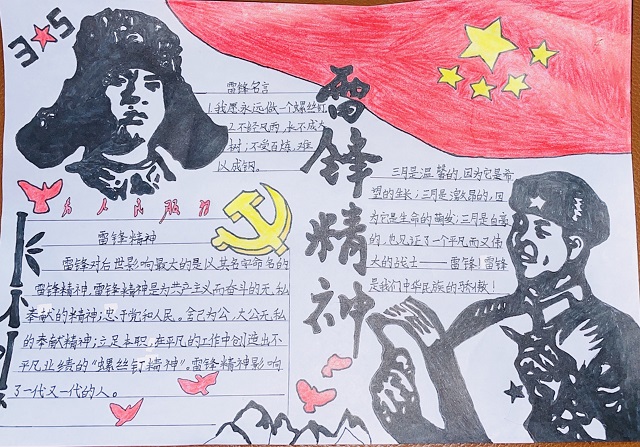 3★5
雷锋名言
1.我愿永远做一个螺丝钉
2.不经风雨,长不成大
树;不受百炼,难
以成钢。
雷锋精神
为人民服务
三月是温馨的,因为它是希
望的生长;三月是激昂的,因
为它是生命的萌发;三月是自豪
的,也见证了一个平凡而又伟
大的战士——雷锋!雷锋
是我们中华民族的骄傲!
雷锋精神
雷锋对后世影响最大的是以其名字命名的
雷锋精神。雷锋精神是为共产主义而奋斗的无私
奉献的精神;忠于党和人民。舍己为公,大公无私
的奉献精神;立足本职,在平凡的工作中创造出不
平凡业绩的"螺丝钉精神"。雷锋精神影响
了一代又一代的人。